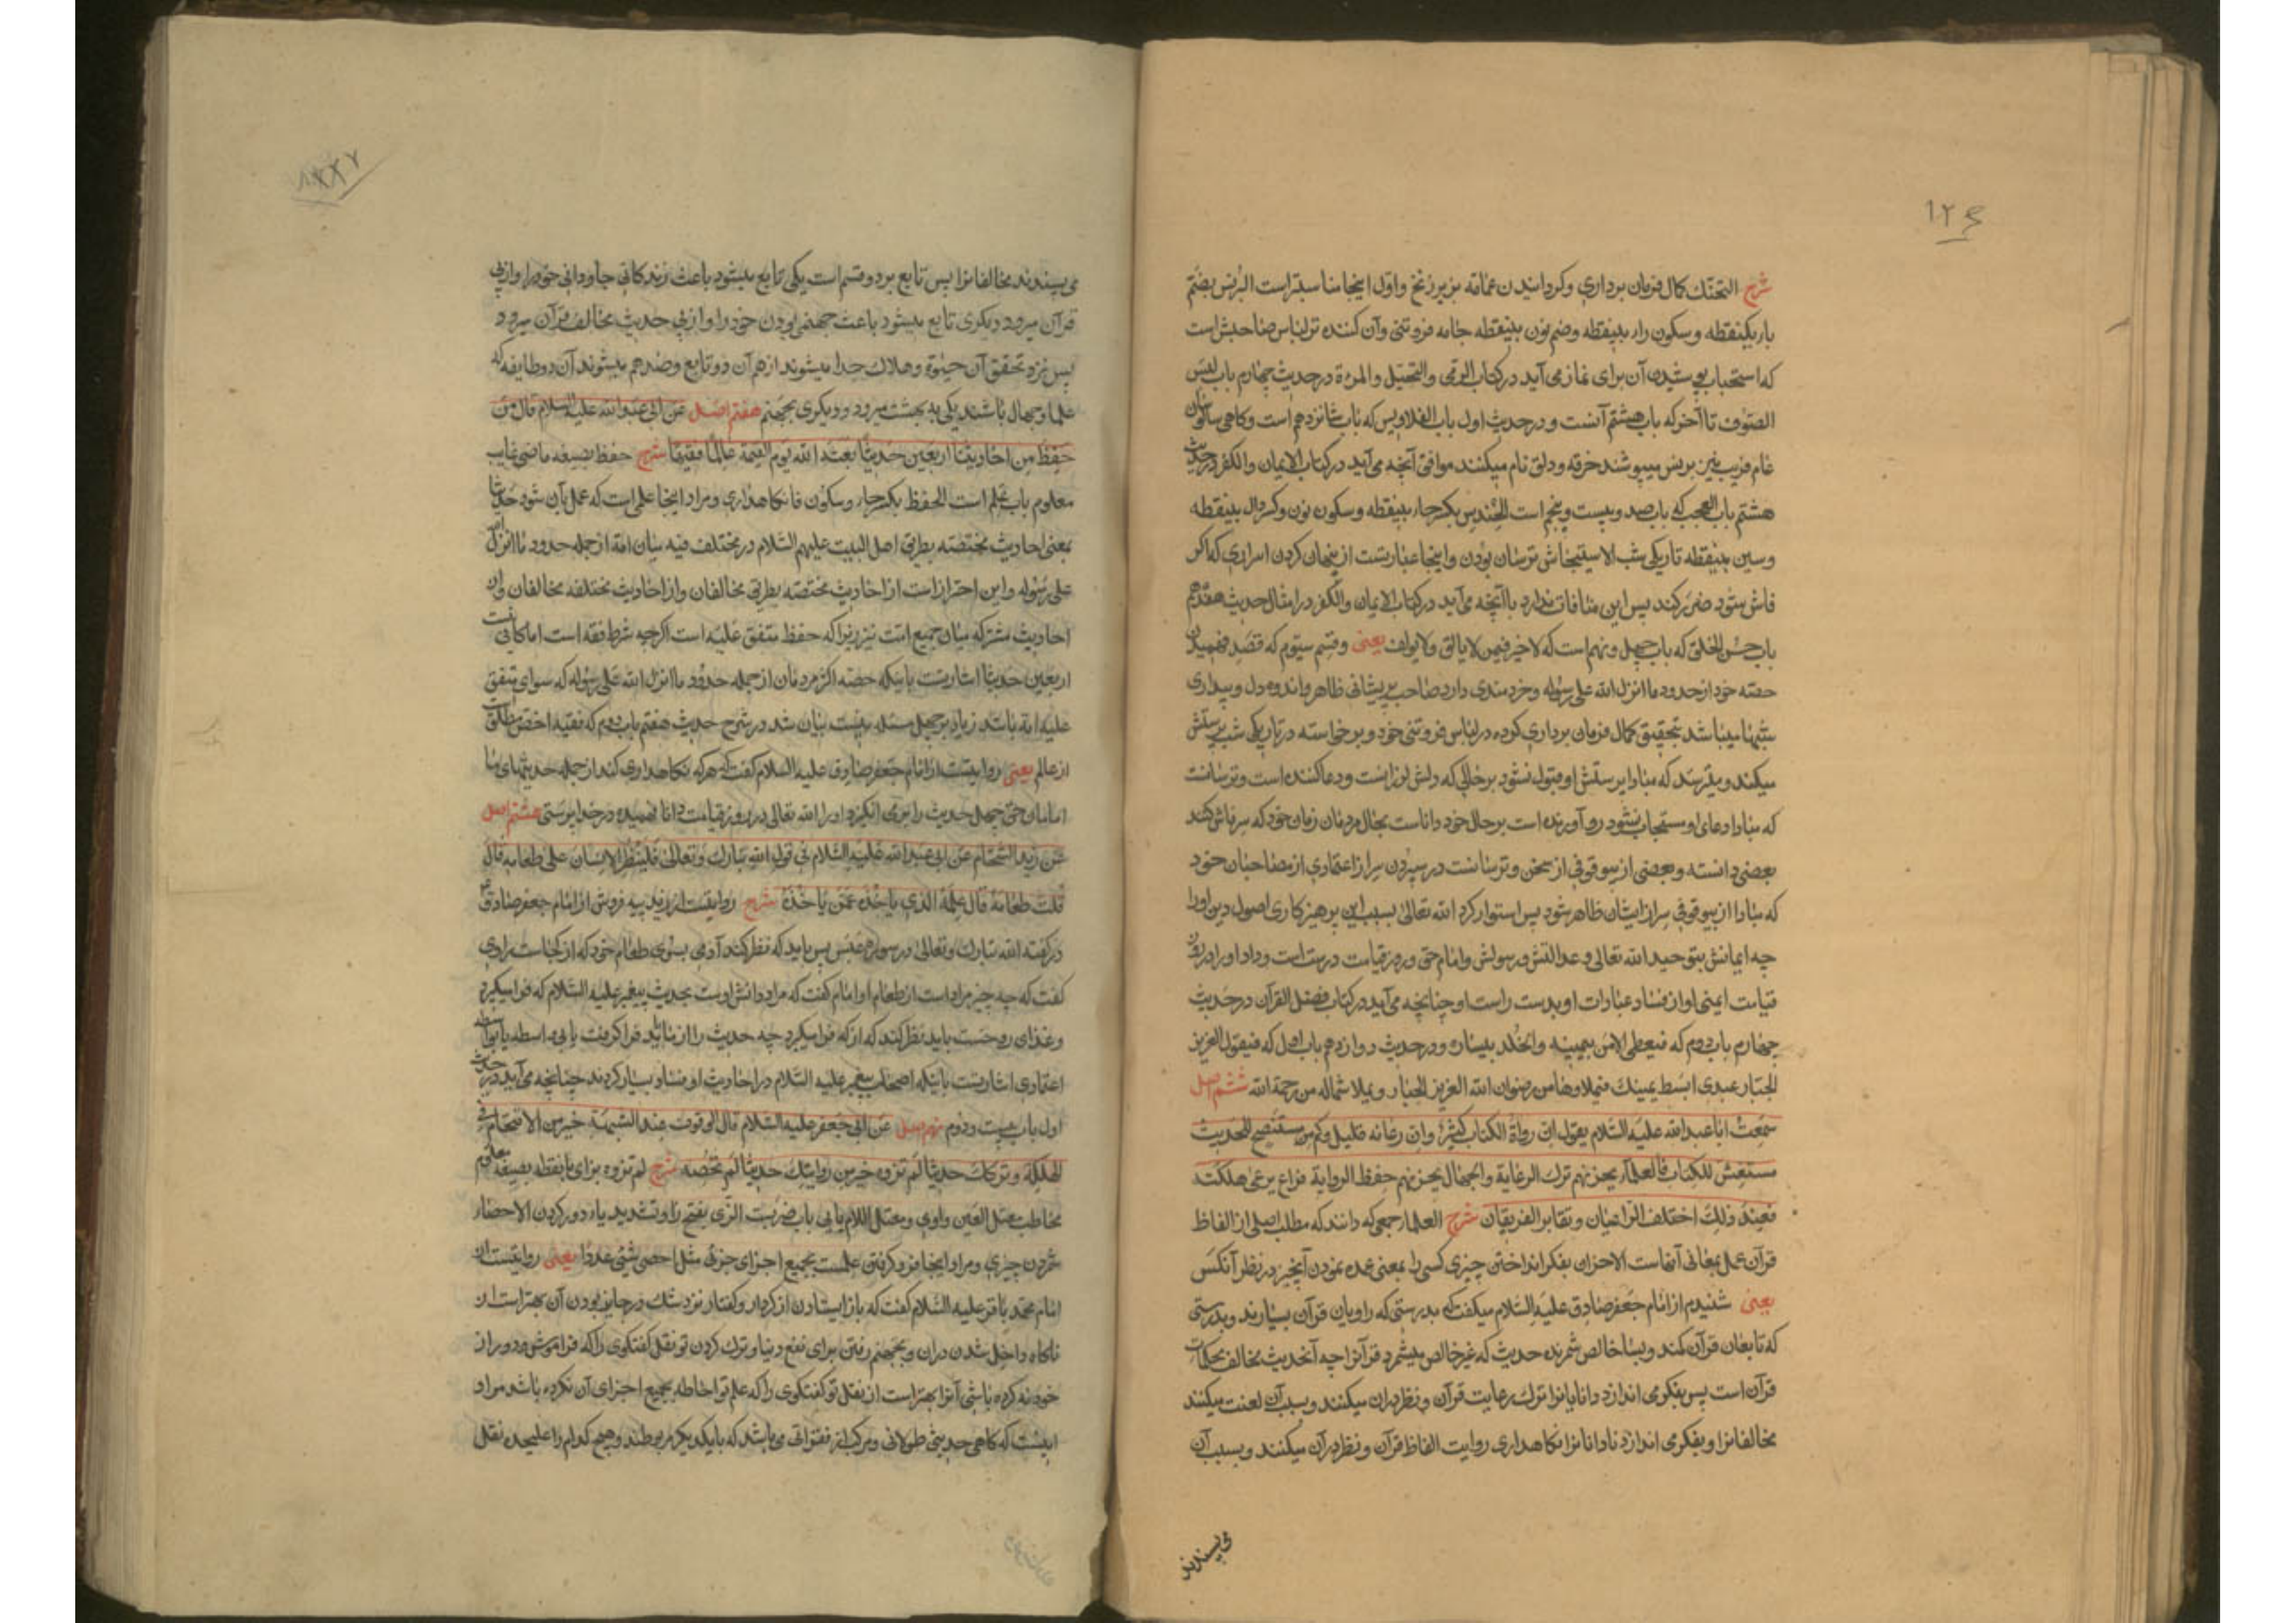 ۱۲۶
شرح التحنّك كمال فرمان برداری وكردانیدن عمامه بزیر زنخ واول اینجا مناسبتر است البرنس بضم
باء یكنقطه وسكون راء بینقطه وضم نون بینقطه جامه فروتنی وآن كننده تو لباس صاحبش است
كه استحباب پوشیدن آن برای نماز می آید در كتاب الزی والتجمل والمروة در حدیث چهارم باب لبس
الصوف تا آخر كه باب هشتم آنست ودر حدیث اول باب القلانس كه باب شانزدهم است وكاهی سالوسان
عام فریب نیز برنس میپوشند خرقه ودلق نام میكنند موافق آنچه می آید در كتاب الایمان والكفر در حدیث
هشتم باب العجب كه باب صد وبیست وپنجم است الحندس بكسر حاء بینقطه وسكون نون وكسر دال بینقطه
وسین بینقطه تاریكی شب الاستیحاش ترسان بودن واینجا عبارتست از پنهان كردن اسراری كه اكر
فاش شود ضرر كند پس این منافات ندارد با آنچه می آید در كتاب الایمان والكفر در امثال حدیث هفدهم
باب حسن الخلق كه باب چهل ونهم است كه لا خیر فیمن لا یالف ولا یولف یعنی وقسم سیوم كه قصد فهمیدن
حصه خود از حدود ما انزل الله علی رسوله وخردمندی دارد صاحب پریشانی ظاهر واندوه دل وبیداری
شبها میباشد بتحقیق كمال فرمان برداری كرده در لباس فروتنی خود وبرخواسته در تاریكی شب پرستش
میكند ومیترسد كه مبادا پرستش او قبول نشود بر حالی كه دلش لرزانست ودعا كننده است وترسانست
كه مبادا دعای او مستجاب نشود رو آورنده است بر حال خود داناست بحال مردمان زمان خود كه سر فاش كنند
بعضی دانسته وبعضی از بیوقوفی از سخن وترسانست در سپردن سر از اعتمادی از مصاحبان خود
كه مبادا از بیوقوفی سر از ایشان ظاهر شود پس استوار كرد الله تعالی بسبب این پرهیزكاری اصول دین او را
چه ایمانش بتوحید الله تعالی وعدالتش ورسولش وامام حق وروز قیامت درست است وداد او را در روز
قیامت ایمنی او از فساد عبادات او بدست راست او چنانچه می آید در كتاب فضل القرآن در حدیث
چهارم باب دوم كه فیعطی الامن بیمینه والخلد بیساره ودر حدیث دوازدهم باب اول كه فیقول العزیز
الجبار عبدی ابسط یمینك فیملاوها من رضوان الله العزیز الجبار ویملا شماله من رحمة الله ششم اصل
سمعت ابا عبد الله علیه السلام یقول ان رواة الكتاب كثیر وان رعاته قلیل وكم من مستنصح للحدیث
مستغش للكتاب فالعلماء یحزنهم ترك الرعایة والجهال یحزنهم حفظ الروایة فراع یرعی هلكته
فعند ذلك اختلف الراعیان وتغایر الفریقان شرح العلماء جمعی كه دانند كه مطلب اصلی از الفاظ
قرآن عمل بمعانی آنهاست الاحزان بفكر انداختن چیزی كسی را بمعنی عمده نمودن آنچیز در نظر آنكس
یعنی شنیدم از امام جعفر صادق علیه السلام میكفت كه بدرستی كه راویان قرآن بسیارند وبدرستی
كه تابعان قرآن كمند وبسا خالص شمرنده حدیث كه غیر خالص میشمرد قرآنرا چه آنحدیث مخالف محكمات
قرآن است پس بفكر می اندازد دانایانرا ترك رعایت قرآن ونظر دران میكنند وبسبب آن لعنت میكنند
مخالفانرا وبفكر می اندازد نادانانرا نكاهداری روایت الفاظ قرآن ونظر در آن میكنند وبسبب آن
می پسندند
می پسندند مخالفانرا پس تابع بر دو قسم است یكی تابع میشود باعث زندكانی جاودانی خود را واز پی
قرآن میرود ودیكری تابع میشود باعث جهنمی بودن خود را واز پی حدیث مخالف قرآن میرود
پس نزد تحقق آن حیوة وهلاك جدا میشوند از هم آن دو تابع وضد هم میشوند آن دو طایفه كه
علما وجهال باشند یكی به بهشت میرود ودیكری بجهنم هفتم اصل عن ابی عبد الله علیه السلام قال من
حفظ من احادیثنا اربعین حدیثا بعثه الله یوم القیمة عالما فقیها شرح حفظ بصیغه ماضی غایب
معلوم باب علم است الحفظ بكسر حاء وسكون فا نكاهداری ومراد اینجا علمی است كه عمل بآن شود حدیثا
بمعنی احادیث مختصه بطریق اهل البیت علیهم السلام در مختلف فیه میان امة از جمله حدود ما انزل الله
علی رسوله واین احتراز است از احادیث مختصه بطریق مخالفان واز احادیث مختلقه مخالفان واز
احادیث مشتركه میان جمیع امت نیز زیرا كه حفظ متفق علیه است اكرچه شرط فقه است اما كافی نیست
اربعین حدیثا اشارتست باینكه حصه اكثر مردمان از جمله حدود ما انزل الله علی رسوله كه سوای متفق
علیه امة باشد زیاد بر چهل مسئله نیست بیان شد در شرح حدیث هفتم باب دوم كه فقیه اخص مطلق است
از عالم یعنی روایتست از امام جعفر صادق علیه السلام كفت كه هر كه نكاهداری كند از جمله حدیثهای ما
امامان حق چهل حدیث را بر می انكیزد او را الله تعالی در روز قیامت دانا فهمیده در خدا پرستی هشتم اصل
عن زید الشحام عن ابی عبد الله علیه السلام فی قول الله تبارك وتعالی فلینظر الانسان علی طعامه قال
قلت طعامه قال علمه الذی یاخذه عمن یاخذه شرح روایتست از زید پیه فروش از امام جعفر صادق ع
در كفته الله تبارك وتعالی در سوره عبس پس باید كه نظر كند آدمی بسوی طعام خود كه از كجاست راوی
كفت كه چه چیز مراد است از طعام او امام كفت كه مراد دانش اوست بحدیث پیغمبر علیه السلام كه فرا میكیرد
وغذای روحست باید نظر كند كه از كه فرا میكیرد چه حدیث را از ما باید فرا كرفت یا بی واسطه یا بواسطه
اعتمادی اشارتست باینكه اصحاب پیغمبر علیه السلام در احادیث او فساد بسیار كردند چنانچه می آید در حدیث
اول باب بیست ودوم نهم اصل عن ابی جعفر علیه السلام قال الوقوف عند الشبهة خیر من الاقتحام فی
الهلكة وتركك حدیثا لم تروه خیر من روایتك حدیثا لم تحصه شرح لم تروه برای با نقطه بصیغه معلوم
مخاطب معتل العین واوی ومعتل اللام یایی باب ضربست الزّی بفتح زا وتشدید یاء دور كردن الاحصاء
شمردن چیزی ومراد اینجا فرو كرفتن علمست بجمیع اجزای جزئی مثل احصی شیئ عددا یعنی روایتست از
امام محمد باقر علیه السلام كفت كه باز ایستادن از كردار وكفتار نزد شك در جایز بودن آن بهتر است از
ناكاه داخل شدن دران وبجهنم رفتن برای نفع دنیا وترك كردن تو نقل كفتكوی را كه فراموش ودور از
خود نه كرده باشی آنرا بهتر است از نقل تو كفتكوی را كه علم تو احاطه بجمیع اجزای آن نكرده باشد مراد
اینست كه كاهی حدیثی طولانی ومركب از فقراتی می باشد كه با یكدیكر مربوطند وهیچ كدام را علیحده نقل